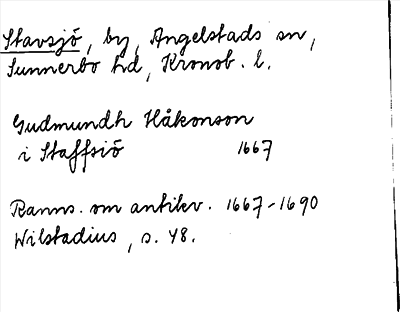 Stavsjö, by, Angelstads sn,
Sunnerbo hd, Kronob. l.
Gudmundh Håkonson
i Staffsiö 1667
Ranns. om antikv. 1667-1690
Wilstadius, s. 48.